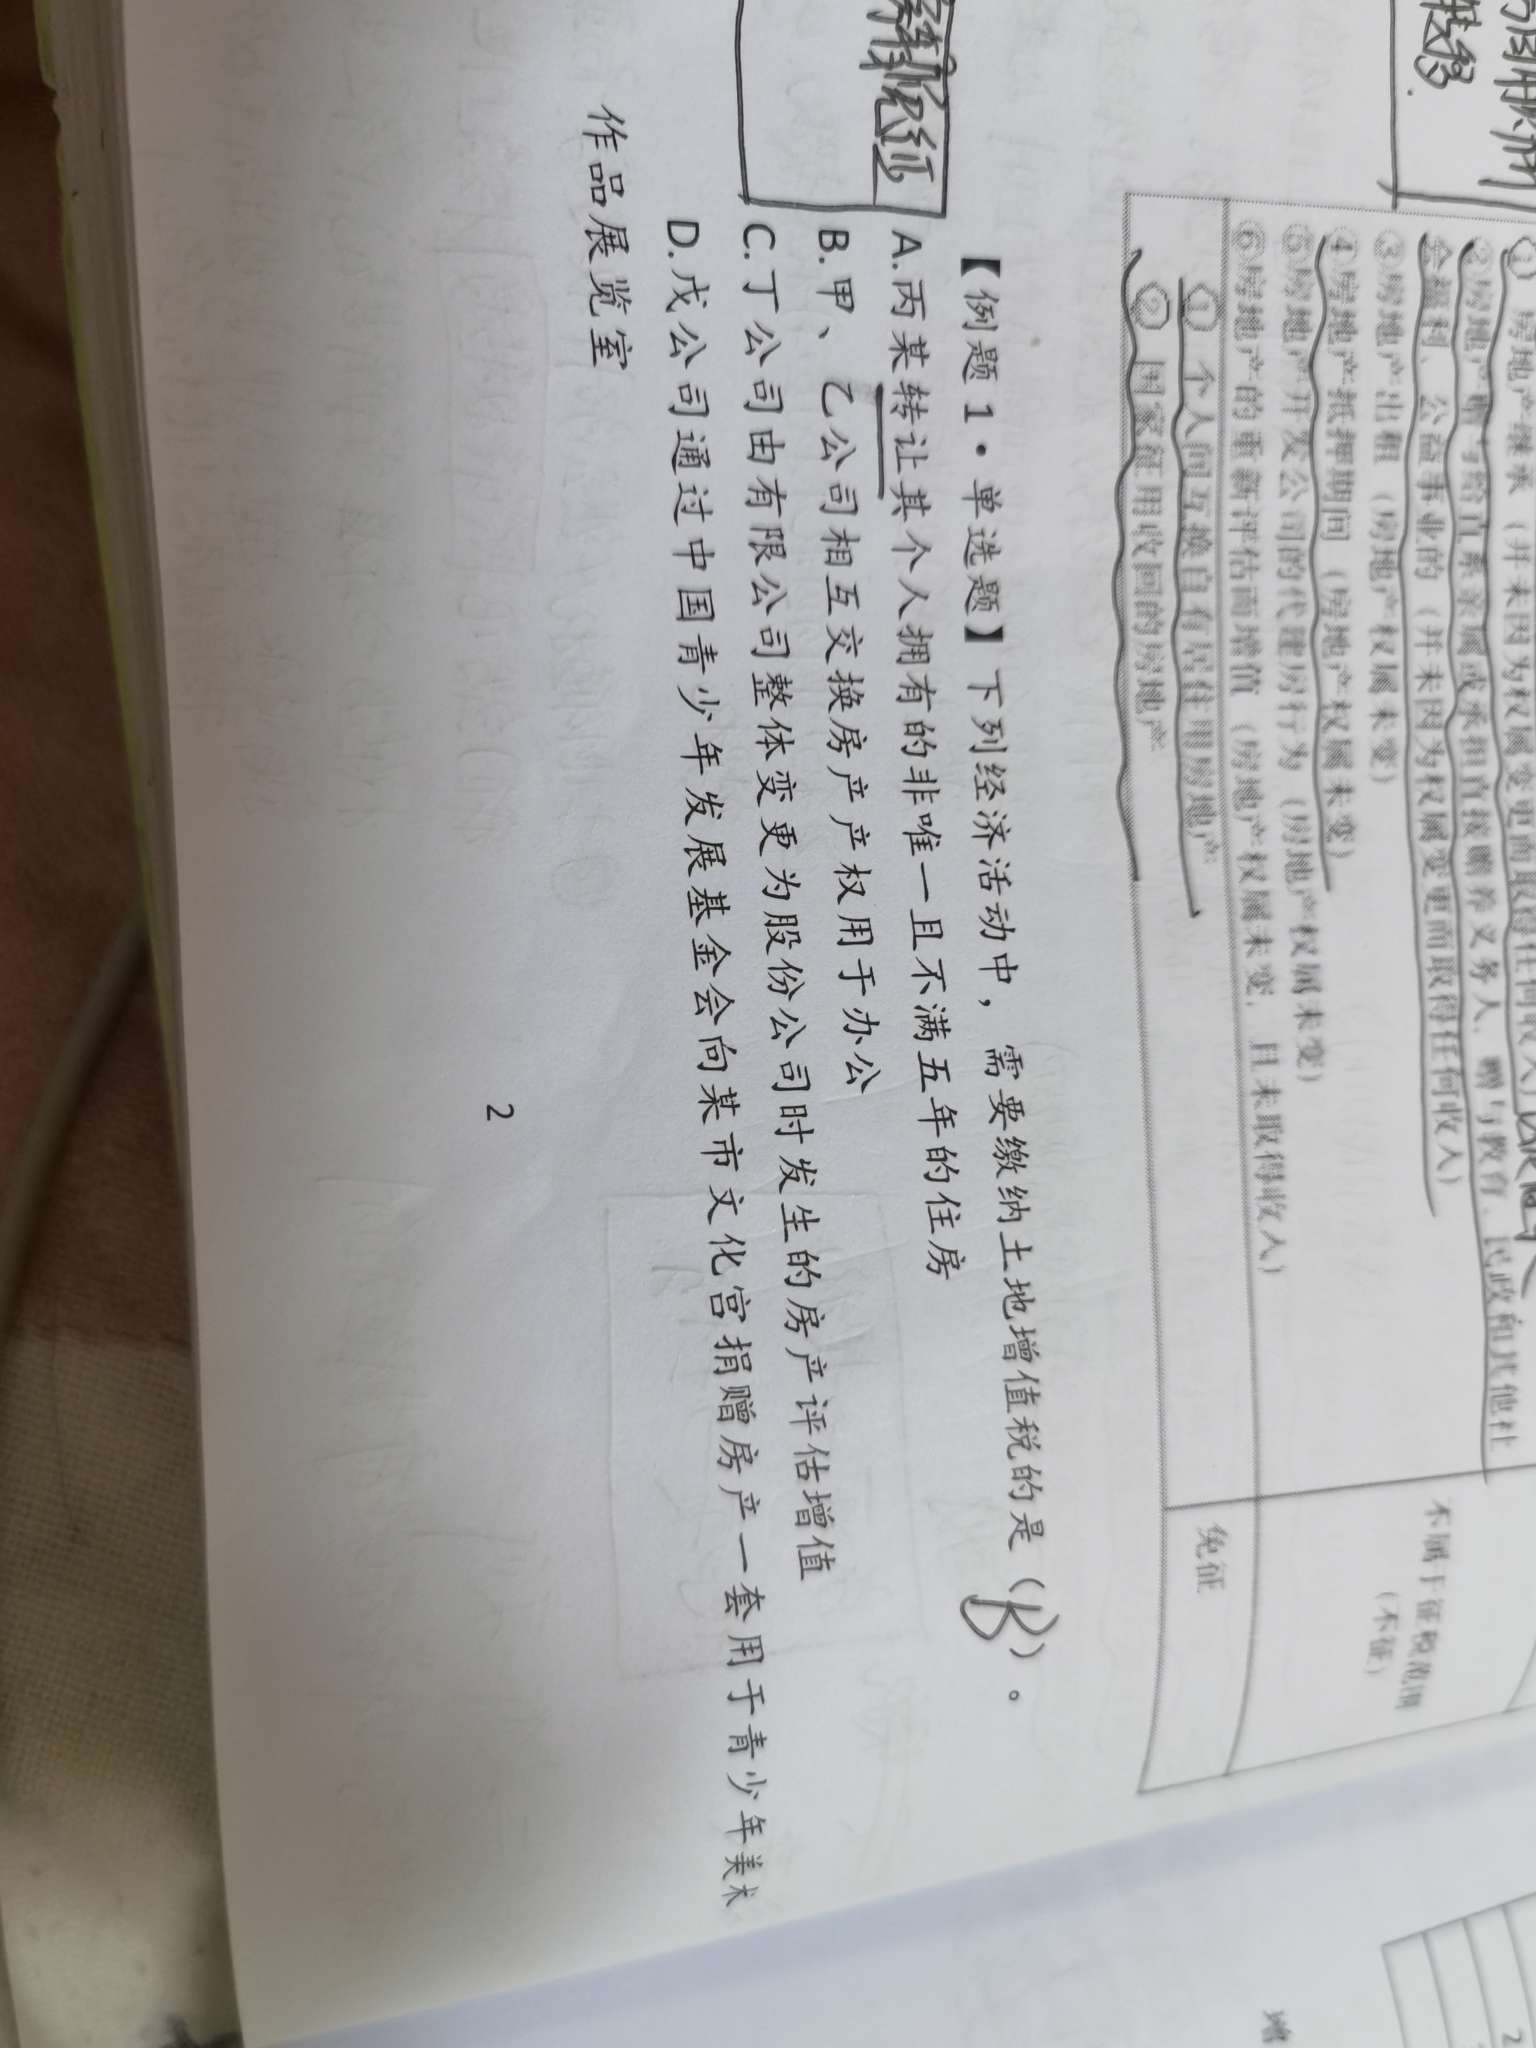 转移.
①房地产继承（并未因为权属变更而取得任何收入）
②房地产赠与给直系亲属或承担直接赡养义务人、赠与教育、民政和其他社
会福利、公益事业的（并未因为权属变更而取得任何收入）
③房地产出租（房地产权属未变）
④房地产抵押期间（房地产权属未变）
⑤房地产开发公司的代建房行为（房地产权属未变）
⑥房地产的重新评估而增值（房地产权属未变，且未取得收入）
不属于征税范围
（不征）
①个人间互换自有居住用房地产
②国家征用收回的房地产
免征
免征
【例题1·单选题】下列经济活动中，需要缴纳土地增值税的是（B）。
A.丙某转让其个人拥有的非唯一且不满五年的住房
B.甲、乙公司相互交换房产产权用于办公
C.丁公司由有限公司整体变更为股份公司时发生的房产评估增值
D.戊公司通过中国青少年发展基金会向某市文化宫捐赠房产一套用于青少年美术
作品展览室
2
增
2